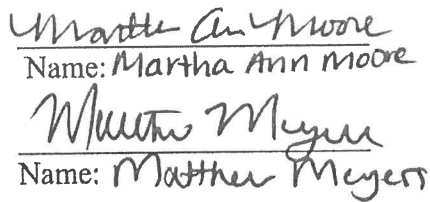 Martha Ann Moore
Name: Martha Ann Moore
Matthew Meyers
Name: Matthew Meyers